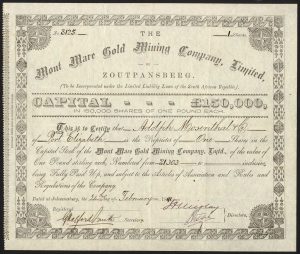 THE
Mont Mare Gold Mining Company, Limited,
OF
ZOUTPANSBERG.
(To be Incorporated under the Limited Liability Laws of the South African Republic.)
CAPITAL £150,000,
IN 150,000 SHARES OF ONE POUND EACH.
This is to Certify that Adolph Mosenthal & Co
of Port Elizabeth is the Proprietor of One Share in the
Capital Stock of the Mont Mare Gold Mining Company, Limtd., of the value of
One Pound sterling each, Numbered from to inclusive,
being Fully Paid Up, and subject to the Articles of Association and Rules and
Regulations of the Company.
Dated at Johannesburg, the February
Registered
Secretary.
Directors.